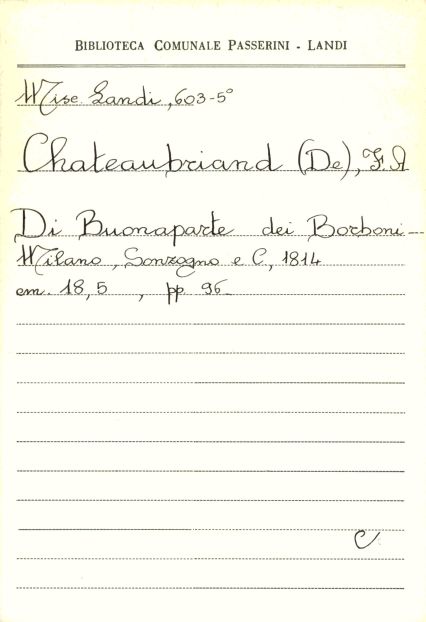 BIBLIOTECA COMUNALE PASSERINI - LANDI
Misc. Landi, 603-5°
Chateaubriand (De), F. A
Di Buonaparte dei Borboni -
Milano, Sonzogno e C, 1814
cm. 18,5 , pp. 96
C